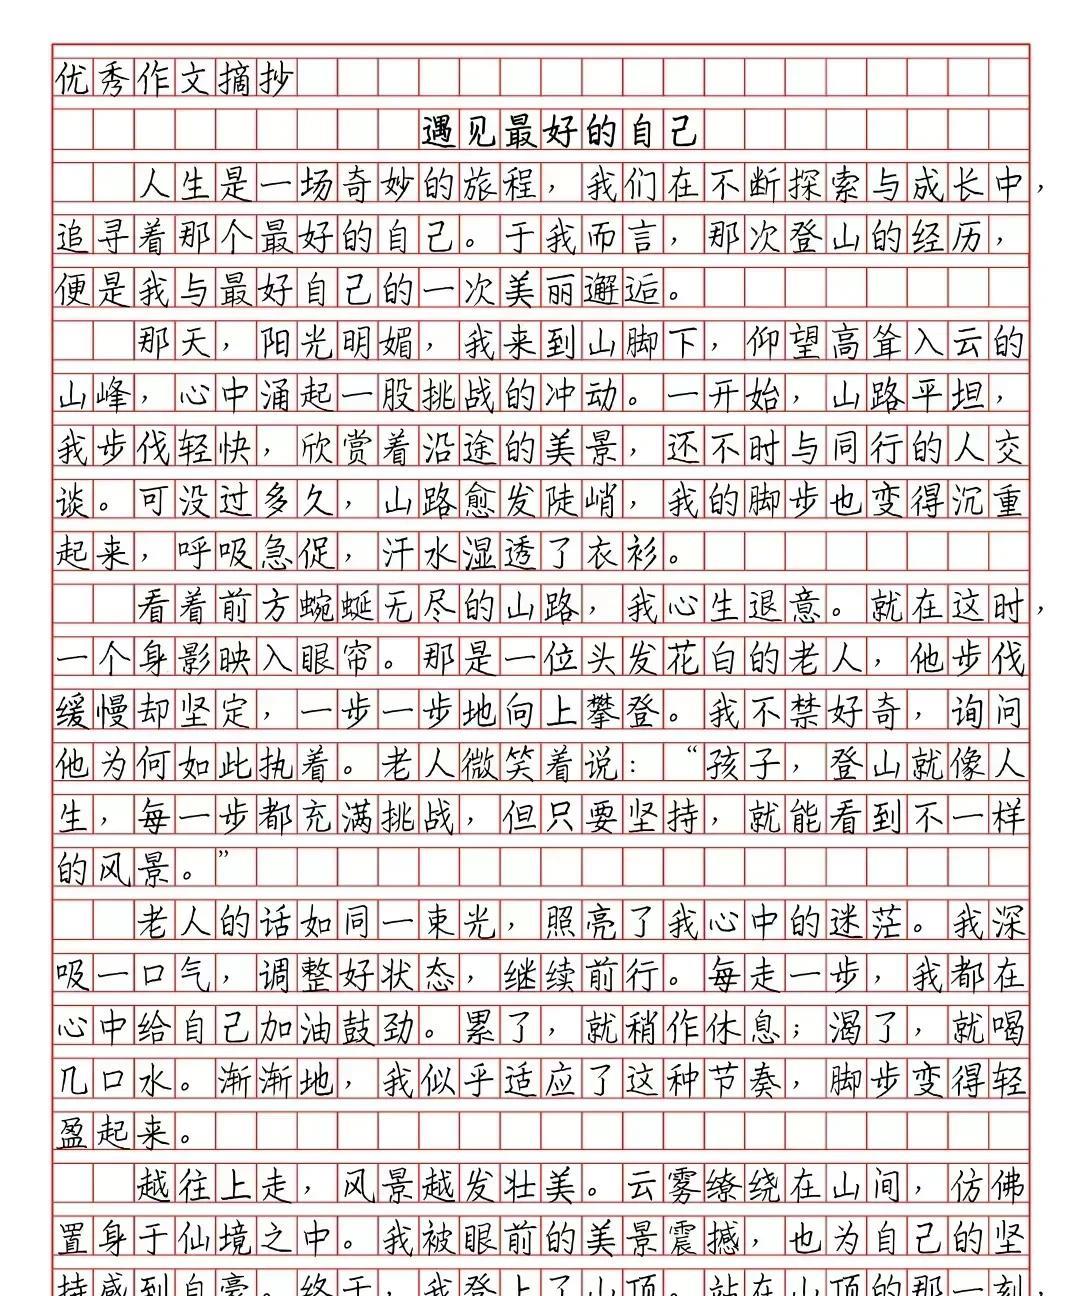 优秀作文摘抄
遇见最好的自己
人生是一场奇妙的旅程，我们在不断探索与成长中，
追寻着那个最好的自己。于我而言，那次登山的经历，
便是我与最好自己的一次美丽邂逅。
那天，阳光明媚，我来到山脚下，仰望高耸入云的
山峰，心中涌起一股挑战的冲动。一开始，山路平坦，
我步伐轻快，欣赏着沿途的美景，还不时与同行的人交
谈。可没过多久，山路愈发陡峭，我的脚步也变得沉重
起来，呼吸急促，汗水湿透了衣衫。
看着前方蜿蜒无尽的山路，我心生退意。就在这时，
一个身影映入眼帘。那是一位头发花白的老人，他步伐
缓慢却坚定，一步一步地向上攀登。我不禁好奇，询问
他为何如此执着。老人微笑着说：“孩子，登山就像人
生，每一步都充满挑战，但只要坚持，就能看到不一样
的风景。”
老人的话如同一束光，照亮了我心中的迷茫。我深
吸一口气，调整好状态，继续前行。每走一步，我都在
心中给自己加油鼓劲。累了，就稍作休息；渴了，就喝
几口水。渐渐地，我似乎适应了这种节奏，脚步变得轻
盈起来。
越往上走，风景越发壮美。云雾缭绕在山间，仿佛
置身于仙境之中。我被眼前的美景震撼，也为自己的坚
持感到自豪。终于，我登上了山顶。站在山顶的那一刻，